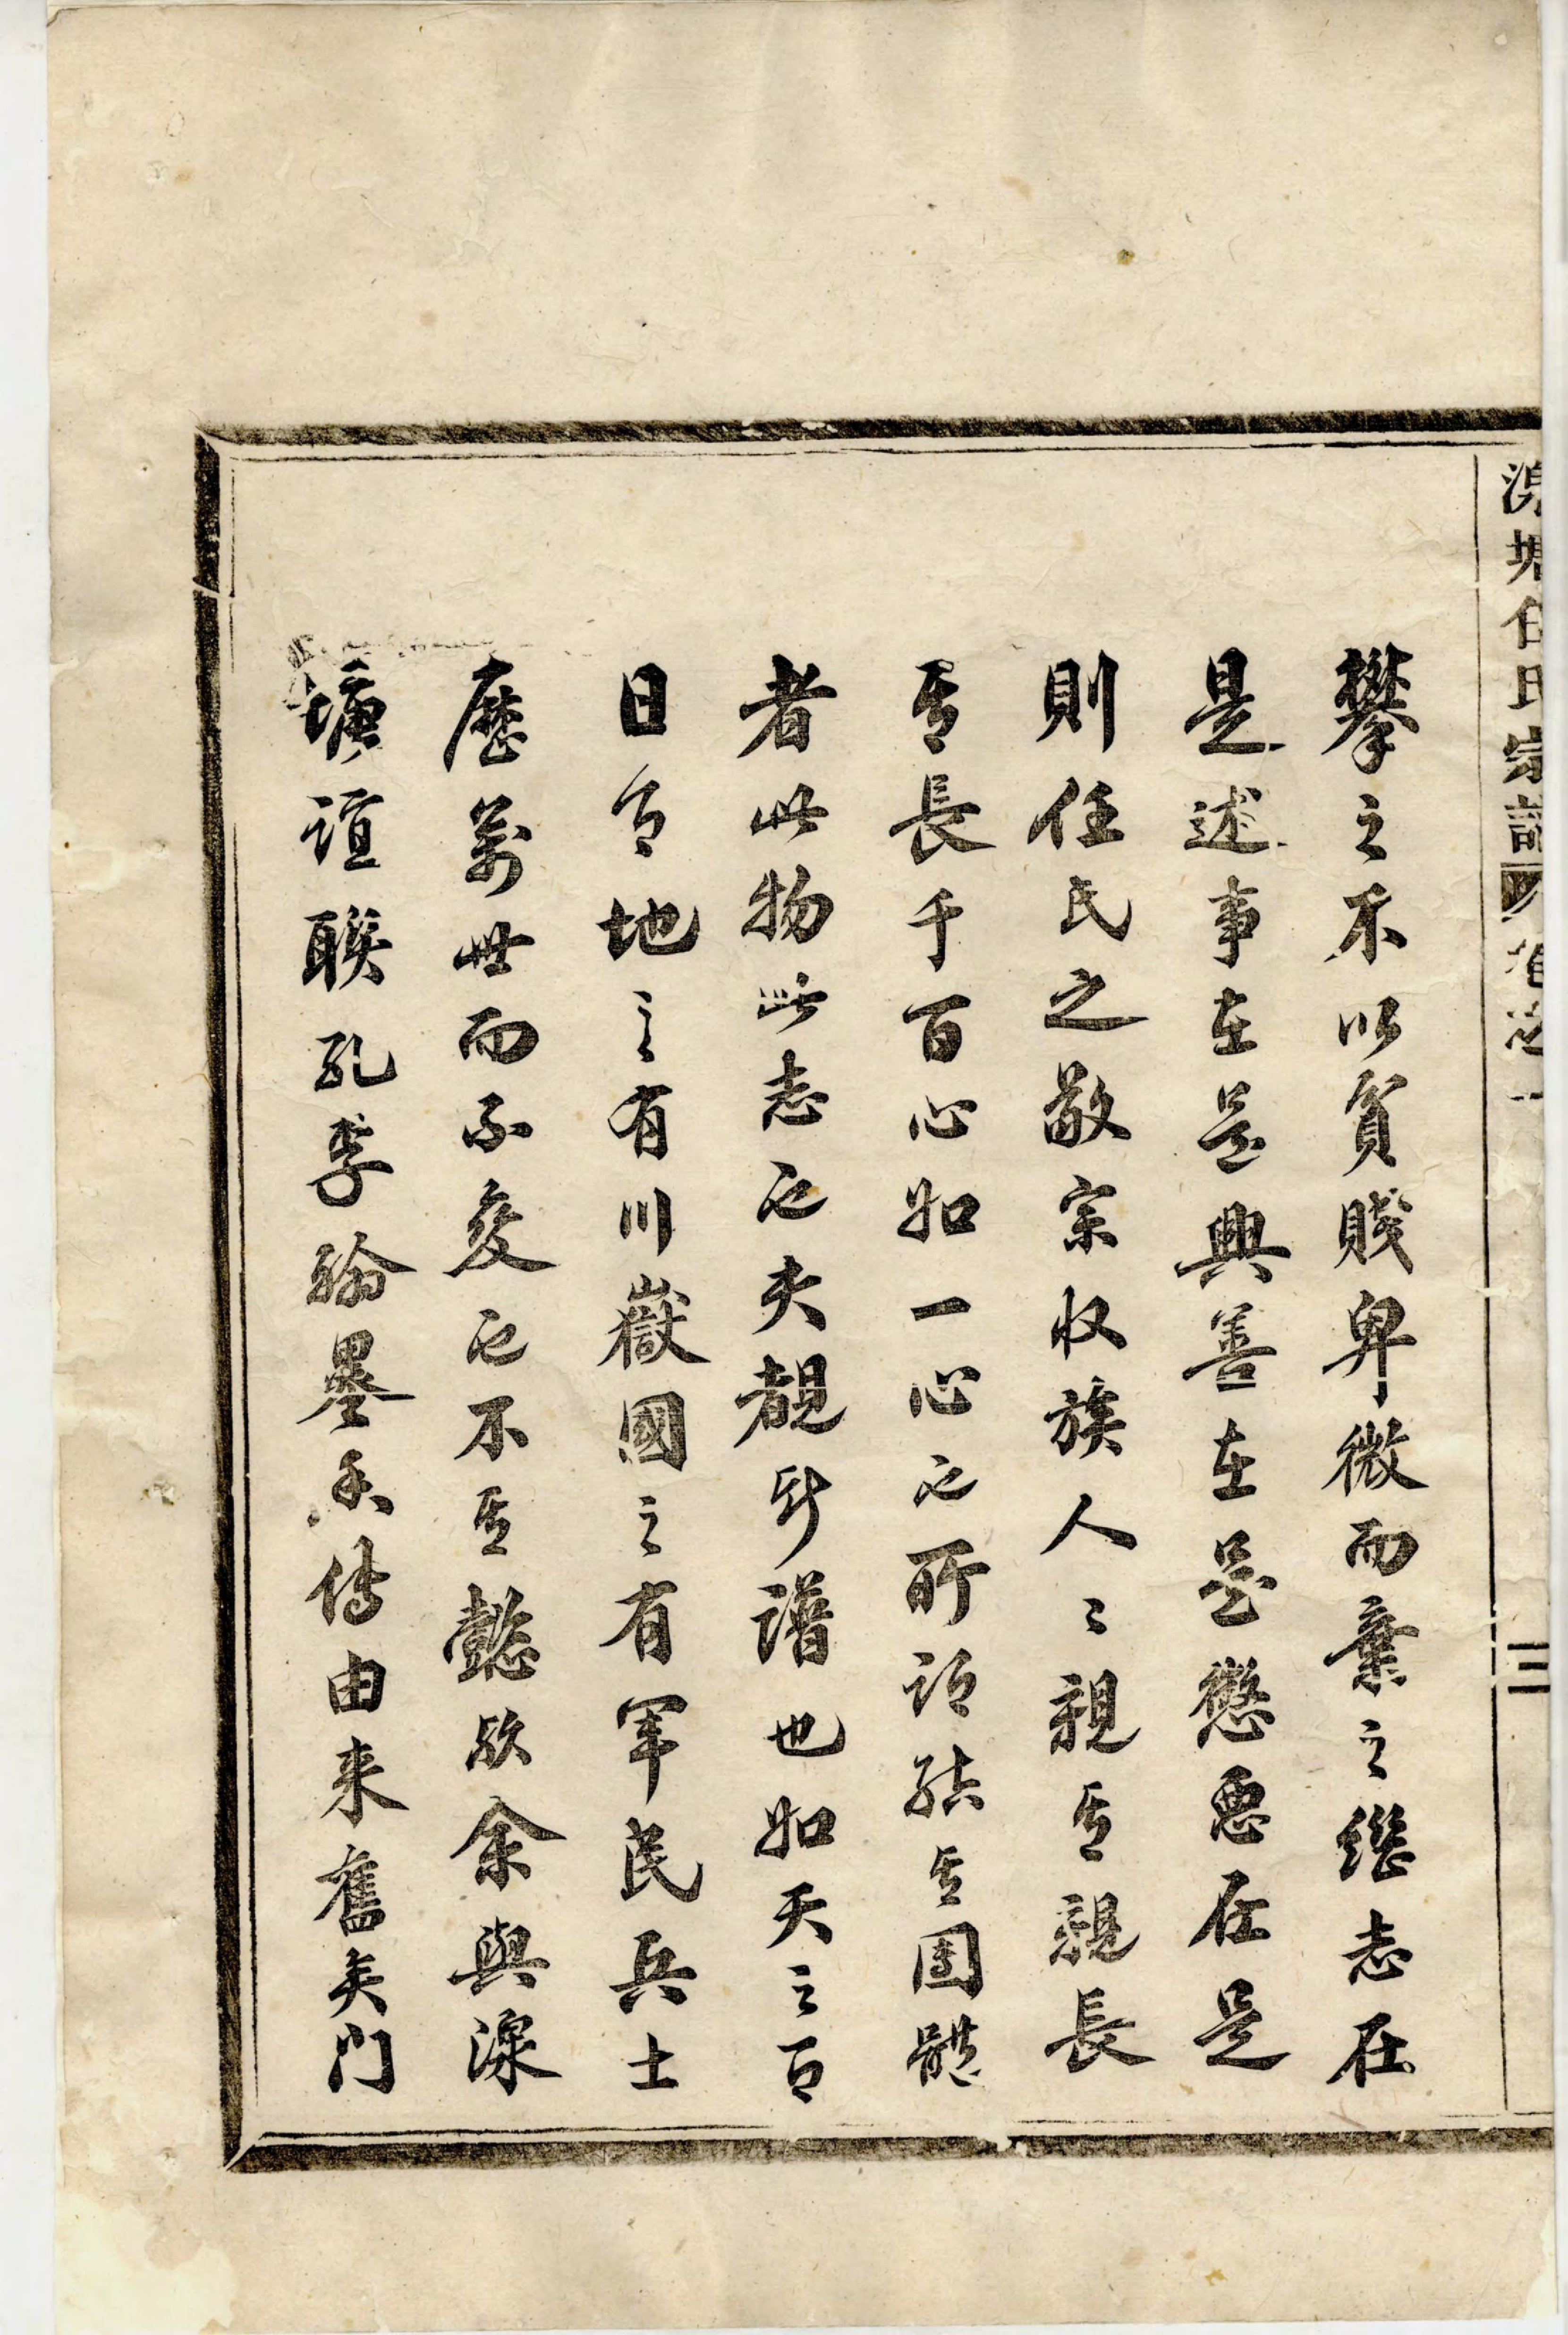 塘任氏宗譜 卷之一 三
攀之不以貧賤卑微而棄之繼志在
是述事在是興善在是懲惡在是
則任氏之敬宗收族人〻親其親長
其長千百心如一心也所謂結其團體
者此物此志也夫覩斯譜也如天之有
日月地之有川嶽國之有軍民兵士
歷萬世而不變也不其懿歟余與湶
塘誼聯孔李翰墨香傳由来舊矣門